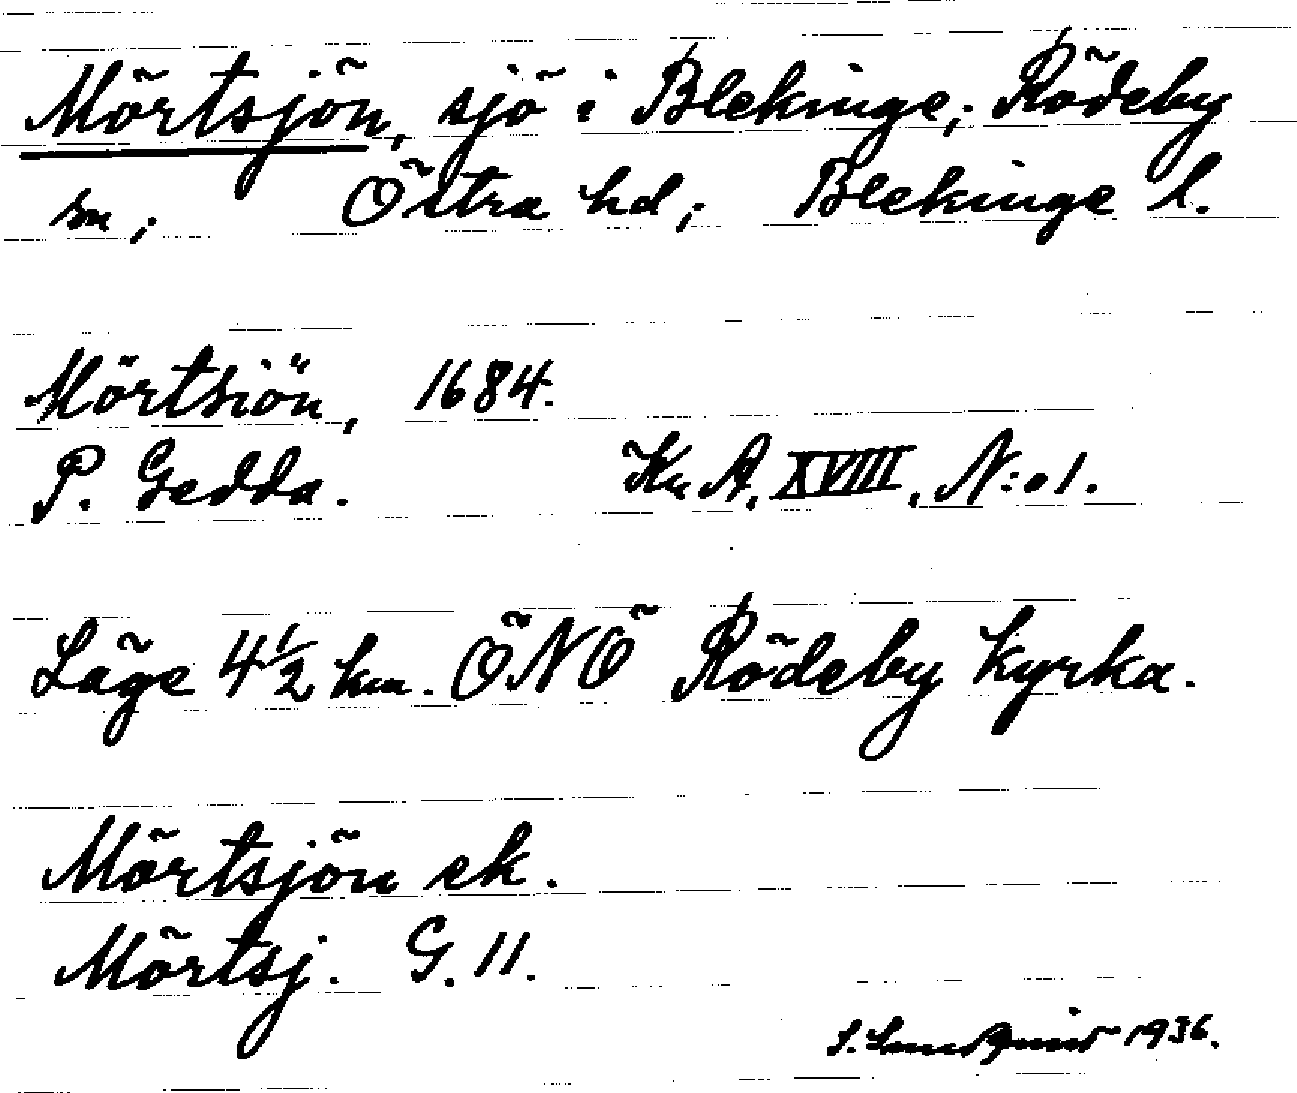 Mörtsjön, sjö i Blekinge; Rödeby
sn; Östra hd; Blekinge l.
Mörtsiön, 1684.
P. Gedda. Kr A. XVIII. N:o 1.
Läge 4 1/2 km. ÖNÖ Rödeby kyrka.
Mörtsjön ek.
Mörtsj. G. 11.
S. Lundquist 1936.